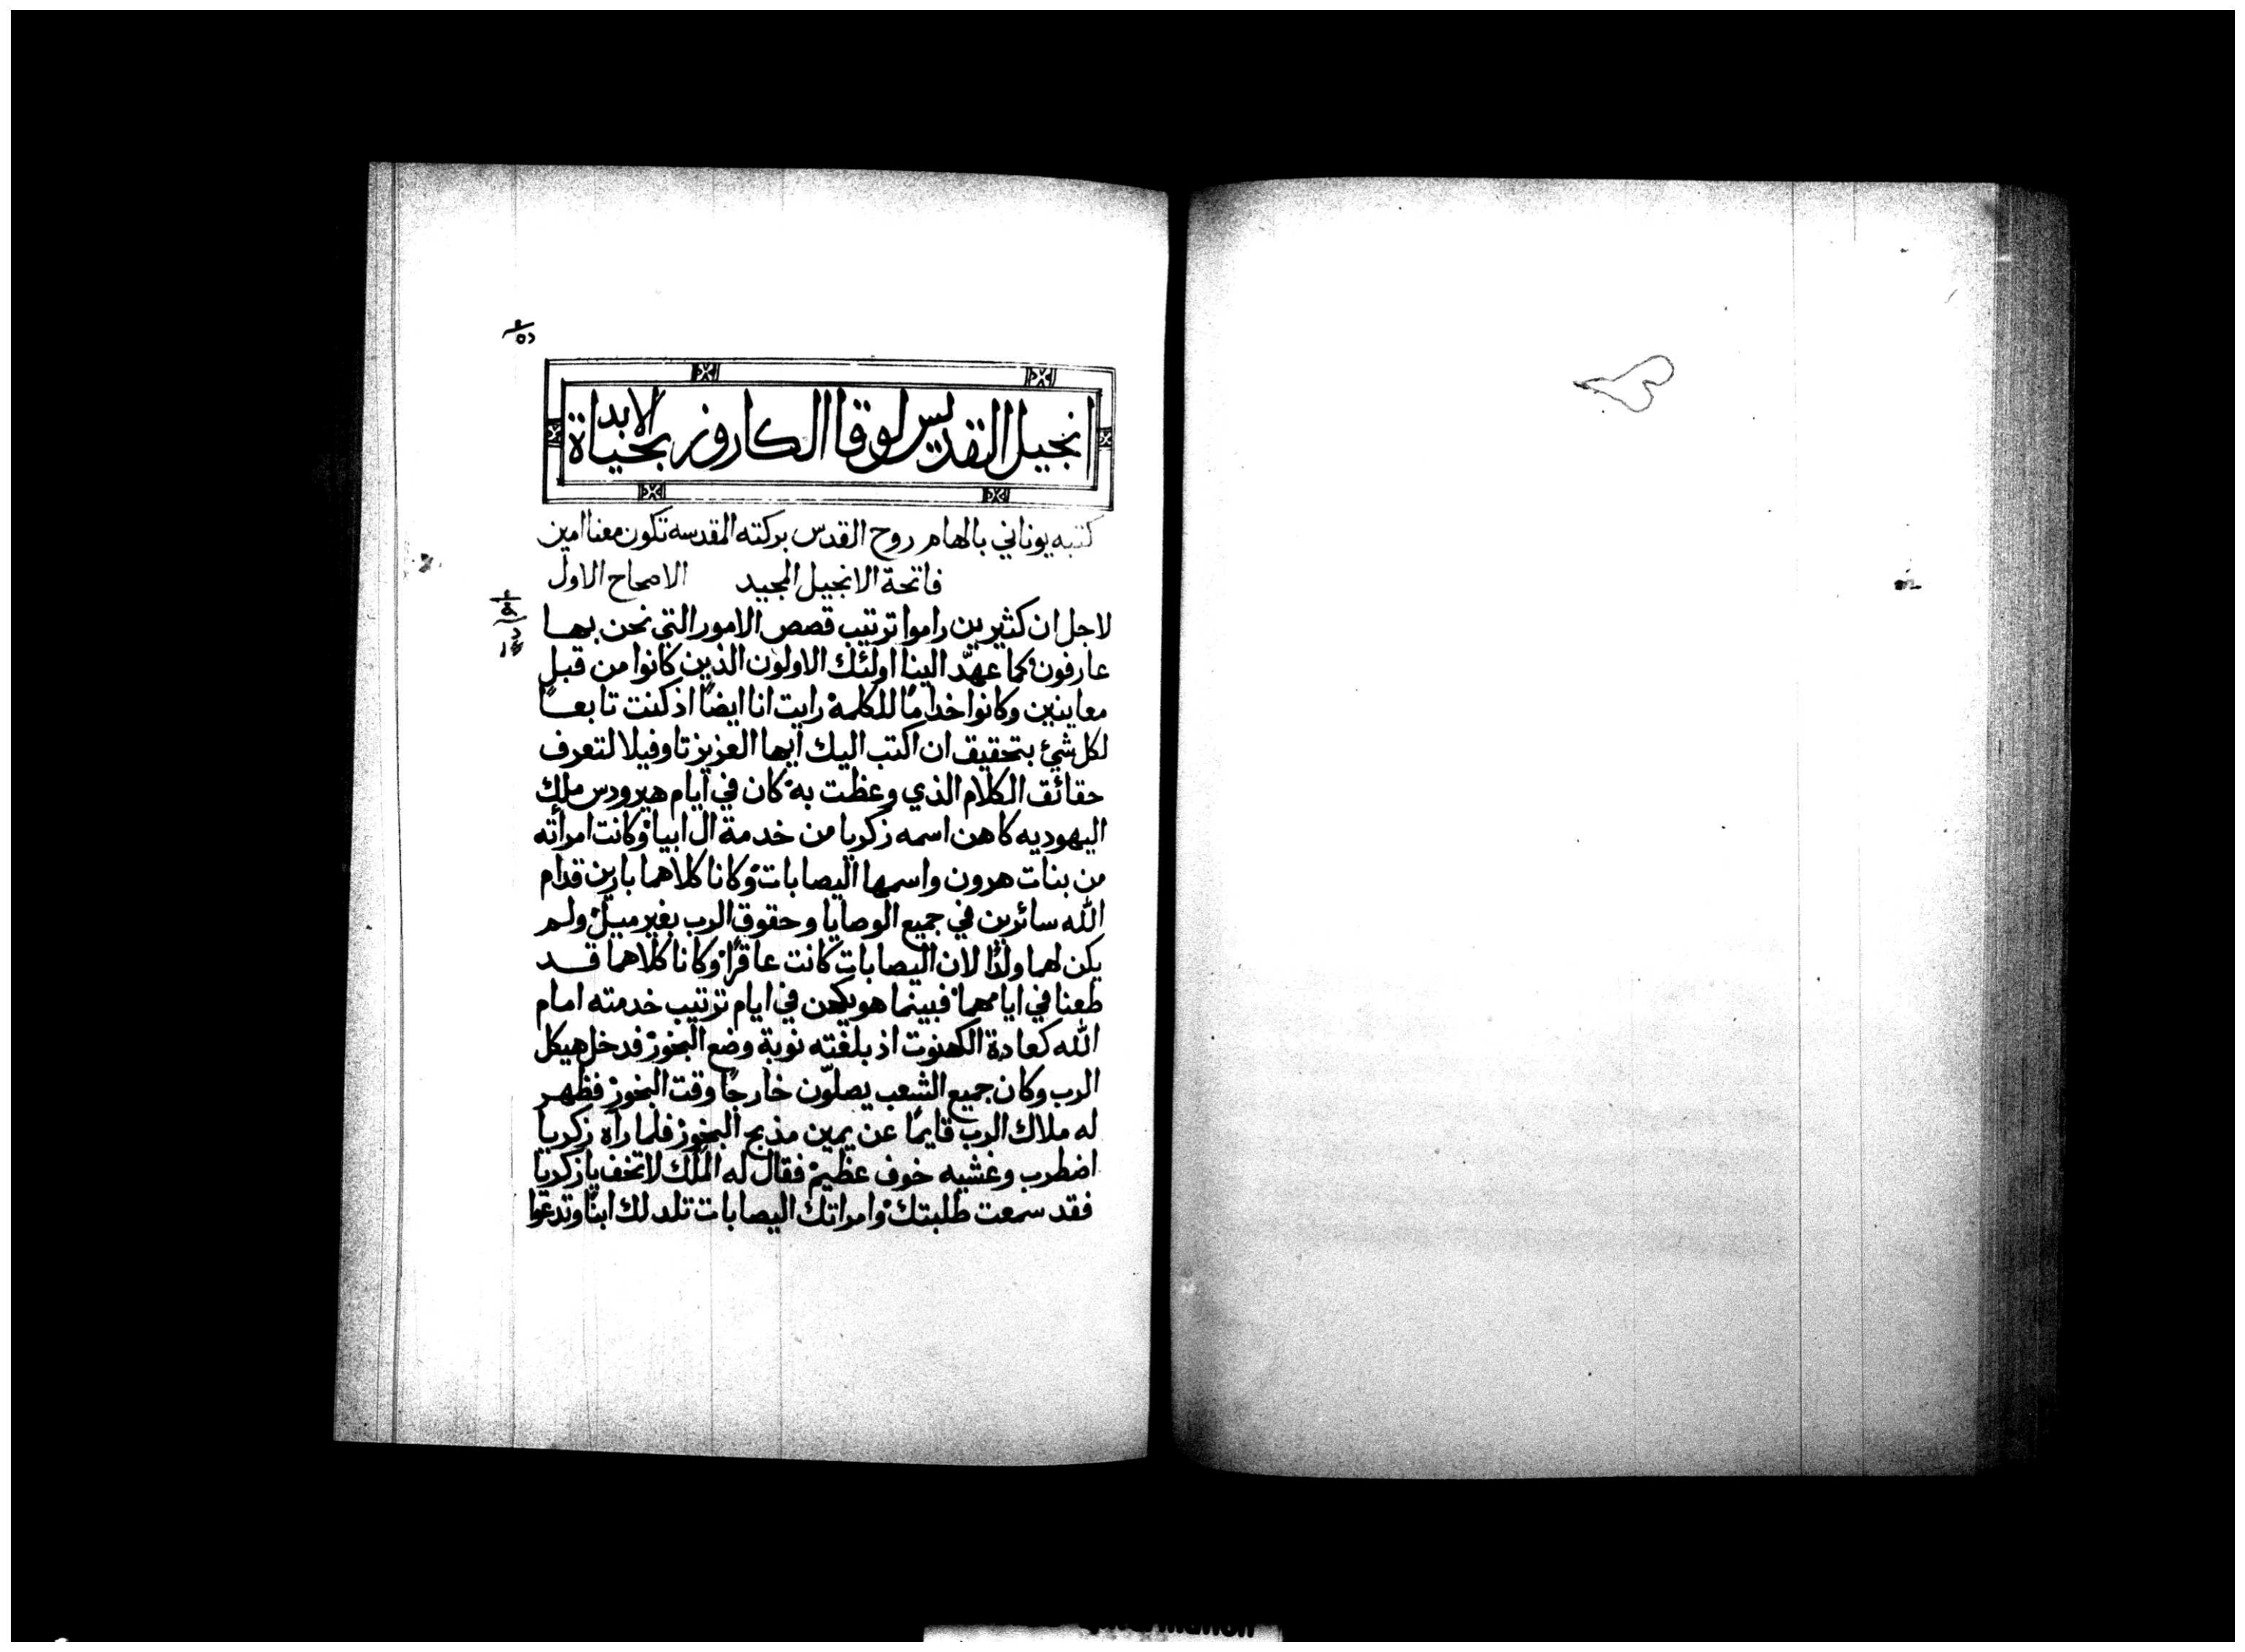 انجيل القديس لوقا الكاروز بحياة الابد
كتبه يوناني بالهام روح القدس بركته المقدسه تكون معنا امين
فاتحة الانجيل المجيد الاصحاح الاول
لاجل ان كثيرين راموا ترتيب قصص الامور التي نحن بها
عارفون كما عهّد الينا اولئك الاولون الذين كانوا من قبل
معاينين وكانوا خدامًا للكلمة رايت انا ايضًا اذ كنت تابعًا
لكل شيء بتحقيق ان اكتب اليك ايها العزيز تاوفيلا لتعرف
حقائق الكلام الذي وعظت به كان في ايام هيرودس ملك
اليهوديه كاهن اسمه زكريا من خدمة ال ابيا وكانت امرأته
من بنات هرون واسمها اليصابات وكانا كلاهما بارين قدام
الله سائرين في جميع الوصايا وحقوق الرب بغير ميل ولم
يكن لهما ولدًا لان اليصابات كانت عاقرًا وكانا كلاهما قد
طعنا في ايامهما فبينما هو يكهن في ايام ترتيب خدمته امام
الله كعادة الكهنوت اذ بلغته نوبة وضع البخور فدخل هيكل
الرب وكان جميع الشعب يصلّون خارجًا وقت البخور فظهر
له ملاك الرب قايمًا عن يمين مذبح البخور فلما رآه زكريا
اضطرب وغشيه خوف عظيم فقال له الملك لا تخف يا زكريا
فقد سمعت طلبتك وامراتك اليصابات تلد لك ابنًا وتدعوا